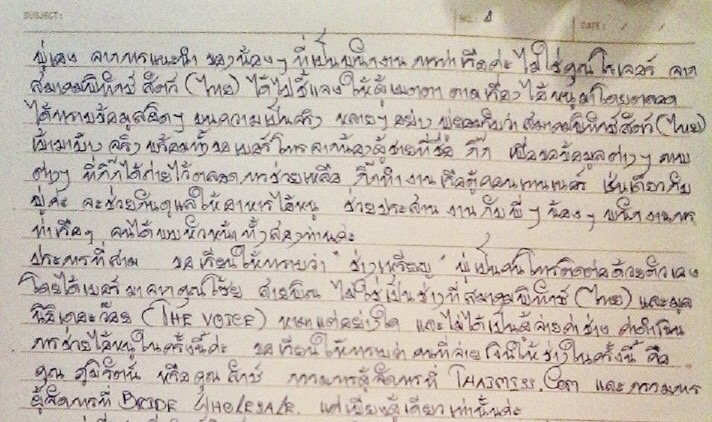 SUBJECT: NO. 1 DATE: / /
ปูเอง จากการแนะนำ ของน้องๆ ที่เป็นพนักงาน การท่าเรือค่ะ ไม่ใช่คุณโรเจอร์ จาก
สมาคมพิทักษ์สัตว์ (ไทย) ได้ไปชี้แจงให้ผู้เมตตา ตามเรื่องไอ้หนูมาโดยตลอด
ได้ทราบข้อมูลผิดๆ บนความเป็นจริง หลายๆ อย่าง ปูยอมรับว่าสมาคมพิทักษ์สัตว์ (ไทย)
เข้ามาช่วง จริง พร้อมทั้งขอเบอร์โทร จากน้องผู้ชายที่ชื่อ กิ๊ก เพื่อขอข้อมูลต่างๆ ภาพ
ต่างๆ ที่กิ๊กได้ถ่ายไว้ตลอดการช่วยเหลือ กิ๊กทำงานเรือตู้คอนเทนเนอร์ เช่นเดียวกับ
ปูค่ะ และช่วยกันดูแลให้อาหารไอ้หนู ช่วยประสานงานกับพี่ๆ น้องๆ พนักงานการ
ท่าเรือฯ จนได้พบหัวหน้าทั้งสองท่านค่ะ
ประการที่สาม ขอเรียนให้ทราบว่า "ช่างเหรียญ" ปูเป็นคนโทรติดต่อด้วยตัวเอง
โดยได้เบอร์มาจากคุณโช้ย สายพิณ ไม่ใช่เป็นช่างที่สมาคมพิทักษ์ (ไทย) และมูล
นิธิเดอะว๊อย (THE VOICE) หามาแต่อย่างใด และไม่ได้เป็นผู้จ่ายค่าช่าง ค่าดำเนิน
การช่วยไอ้หนูในครั้งนี้ค่ะ ขอเรียนให้ทราบว่าคนที่จ่ายเงินให้ช่างในครั้งนี้ คือ
คุณ ภูมิรัตน์ หรือคุณ กรรมการผู้จัดการที่ และกรรมการ
ผู้จัดการที่ BRIDE WHOLESALE. แต่เพียงผู้เดียวเท่านั้นค่ะ